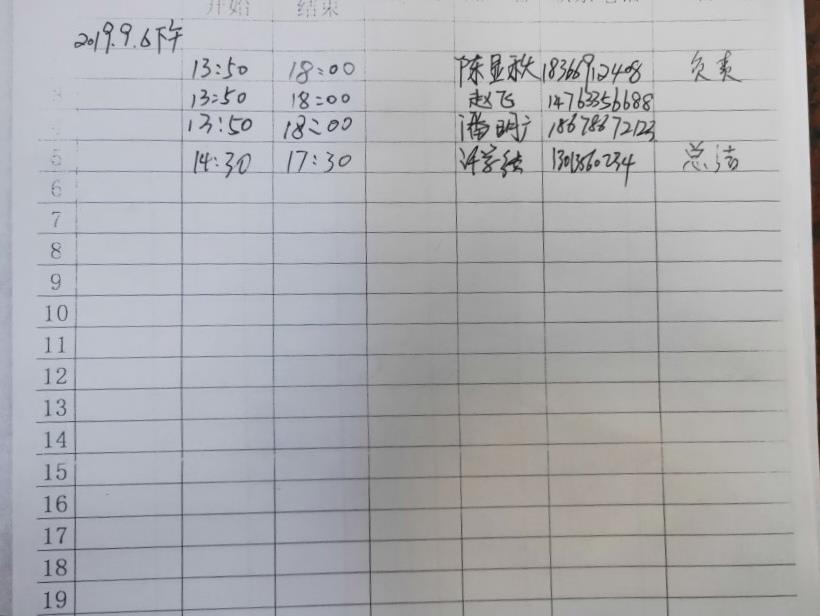 开始 结束
2019.9.6下午
13:50 18:00 陈显秋 18366912408 负责
13:50 18:00 赵飞 14763356688
13:50 18:00 潘明广 18678672123
5 14:30 17:30 13013560234 总结
6
7
8
9
10
11
12
13
14
15
16
17
18
19